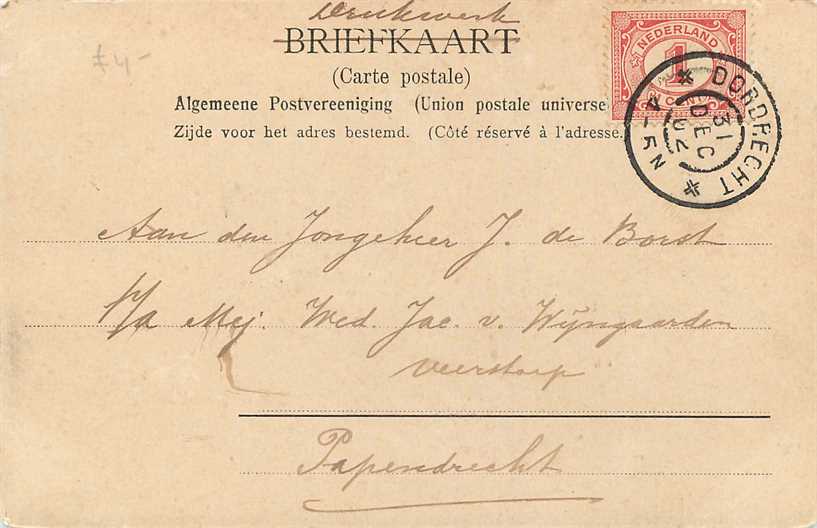 Drukwerk
BRIEFKAART
(Carte postale)
Algemeene Postvereeniging (Union postale universe
Zijde voor het adres bestemd. (Côté réservé à l'adresse.
£4-
NEDERLAND
1
CENT
DORDRECHT
31
DEC
02
4-5N
Aan den Jongeheer J. de Borst
p/a Mej. Wed. Jac. v. Wijngaarden
Veerstoep
Papendrecht